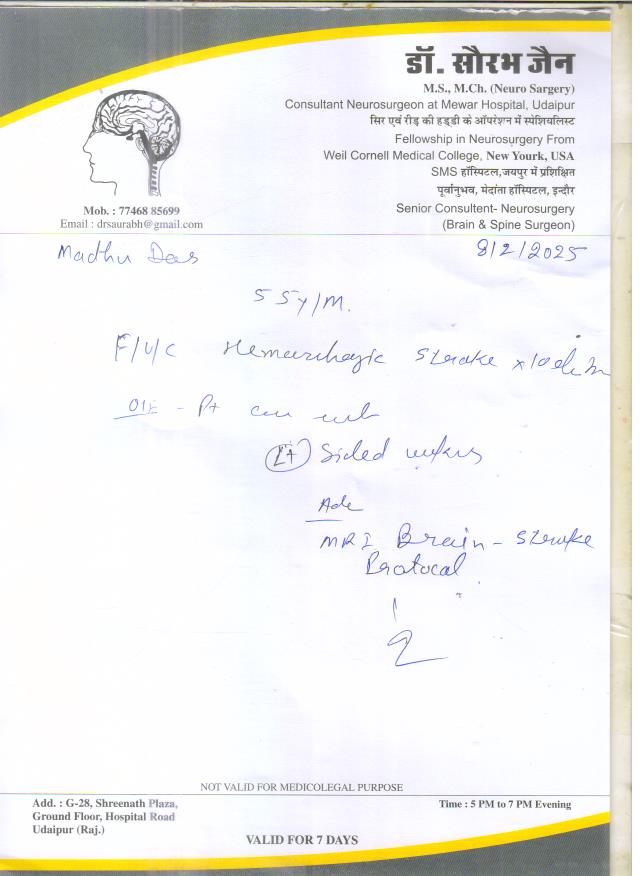 डॉ. सौरभ जैन
M.S., M.Ch. (Neuro Sargery)
Consultant Neurosurgeon at Mewar Hospital, Udaipur
सिर एवं रीड़ की हड्डी के ऑपरेशन में स्पेशियलिस्ट
Fellowship in Neurosurgery From
Weil Cornell Medical College, New Yourk, USA
SMS हॉस्पिटल,जयपुर में प्रशिक्षित
पूर्वानुभव, मेदांता हॉस्पिटल, इन्दौर
Senior Consultant- Neurosurgery
(Brain & Spine Surgeon)
Mob. : 77468 85699
Email : drsaurabh@gmail.com
Madhu Das 8/2/2025
55y/M.
F/U/C Hemorrhagic stroke x10
O/E - Pt
Lt Sided
Adv
MRI Brain - Stroke
Protocal
NOT VALID FOR MEDICOLEGAL PURPOSE
Add. : G-28, Shreenath Plaza,
Ground Floor, Hospital Road
Udaipur (Raj.)
Time : 5 PM to 7 PM Evening
VALID FOR 7 DAYS